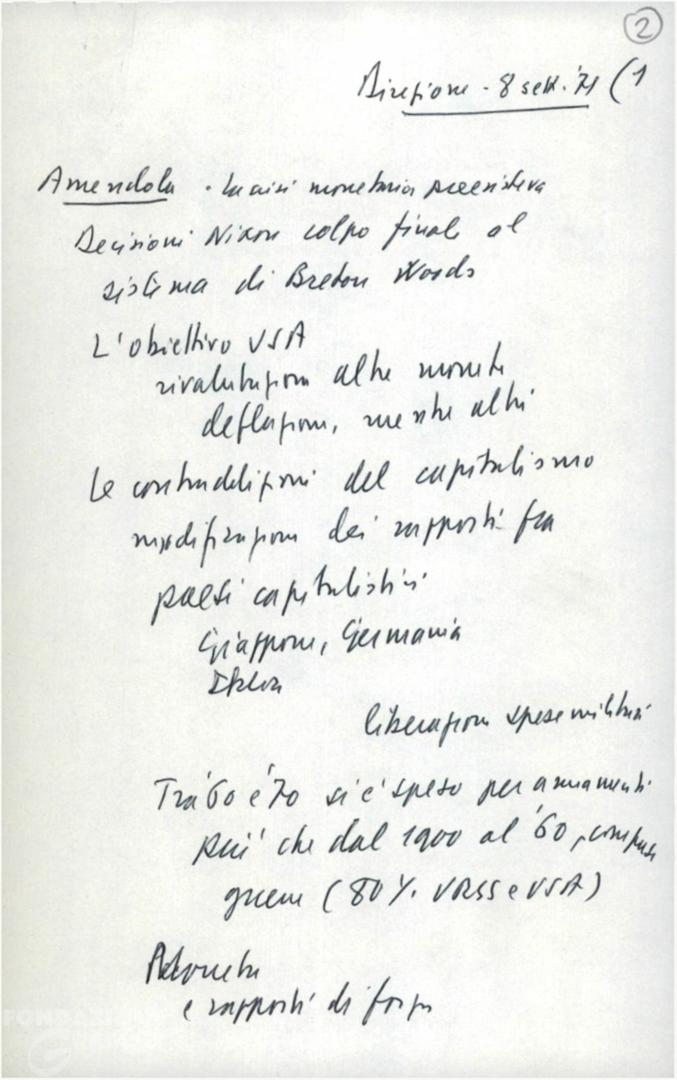 2
Direzione - 8 sett. '71 (1
Amendola - La crisi monetaria preesisteva
Decisioni Nixon colpo finale al
sistema di Breton Woods
L'obiettivo USA
rivalutazione altre monete
deflazione, mentre altri
Le contraddizioni del capitalismo
modificazioni dei rapporti fra
paesi capitalistici
Giappone, Germania
Italia
liberazione spese militari
Tra '60 e '70 si è speso per armamenti
più che dal 1900 al '60, comprese
guerre (80% URSS e USA)
e rapporti di forza
FONDAZI